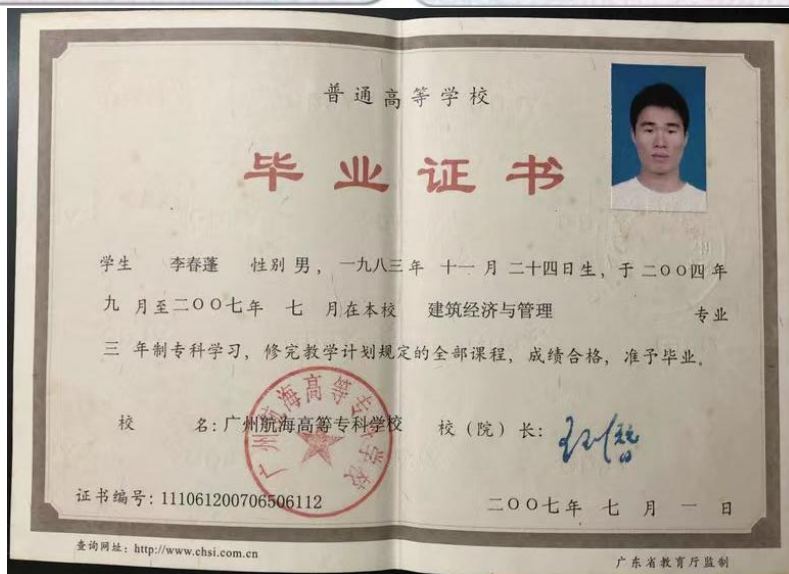 普通高等学校
毕业证书
学生 李春蓬 性别 男，一九八三年 十一月 二十四日生，于二〇〇四年
九 月至二〇〇七年 七 月在本校 建筑经济与管理 专业
三 年制专科学习，修完教学计划规定的全部课程，成绩合格，准予毕业。
校 名：广州航海高等专科学校 校（院）长：
广州航海高等专科学校
证书编号：111061200706506112
二〇〇七年 七 月 一 日
查询网址：http://www.chsi.com.cn
广东省教育厅监制